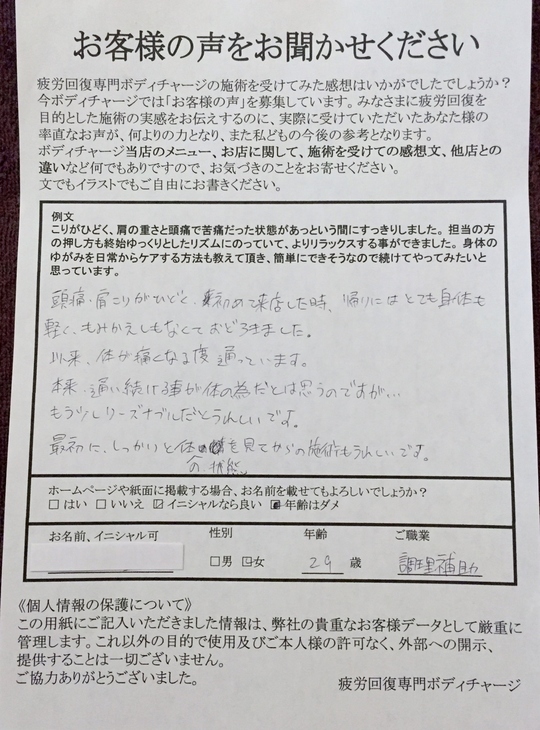 お客様の声をお聞かせください
疲労回復専門ボディチャージの施術を受けてみた感想はいかがでしたでしょうか？
今ボディチャージでは「お客様の声」を募集しています。みなさまに疲労回復を
目的とした施術の実感をお伝えするのに、実際に受けていただいたあなた様の
率直なお声が、何よりの力となり、また私どもの今後の参考となります。
ボディチャージ当店のメニュー、お店に関して、施術を受けての感想文、他店との
違いなど何でもありですので、お気づきのことをお寄せください。
文でもイラストでもご自由にお書きください。
例文
こりがひどく、肩の重さと頭痛で苦痛だった状態があっという間にすっきりしました。担当の方
の押し方も終始ゆっくりとしたリズムにのっていて、よりリラックスする事ができました。身体の
ゆがみを日常からケアする方法も教えて頂き、簡単にできそうなので続けてやってみたいと
思っています。
頭痛・肩こりがひどく、初めて来店した時、帰りにはとても身体も
軽く、もみかえしもなくておどろきました。
以来、体が痛くなる度通っています。
本来、通い続ける事が体の為だとは思うのですが…
もう少しリーズナブルだとうれしいです。
最初に、しっかりと体の状態を見てからの施術もうれしいです。
ホームページや紙面に掲載する場合、お名前を載せてもよろしいでしょうか？
□はい □いいえ ☑イニシャルなら良い ☑年齢はダメ
お名前、イニシャル可 性別 年齢 ご職業
□男 ☑女 29 歳 調理補助
《個人情報の保護について》
この用紙にご記入いただきました情報は、弊社の貴重なお客様データとして厳重に
管理します。これ以外の目的で使用及びご本人様の許可なく、外部への開示、
提供することは一切ございません。
ご協力ありがとうございました。
疲労回復専門ボディチャージ